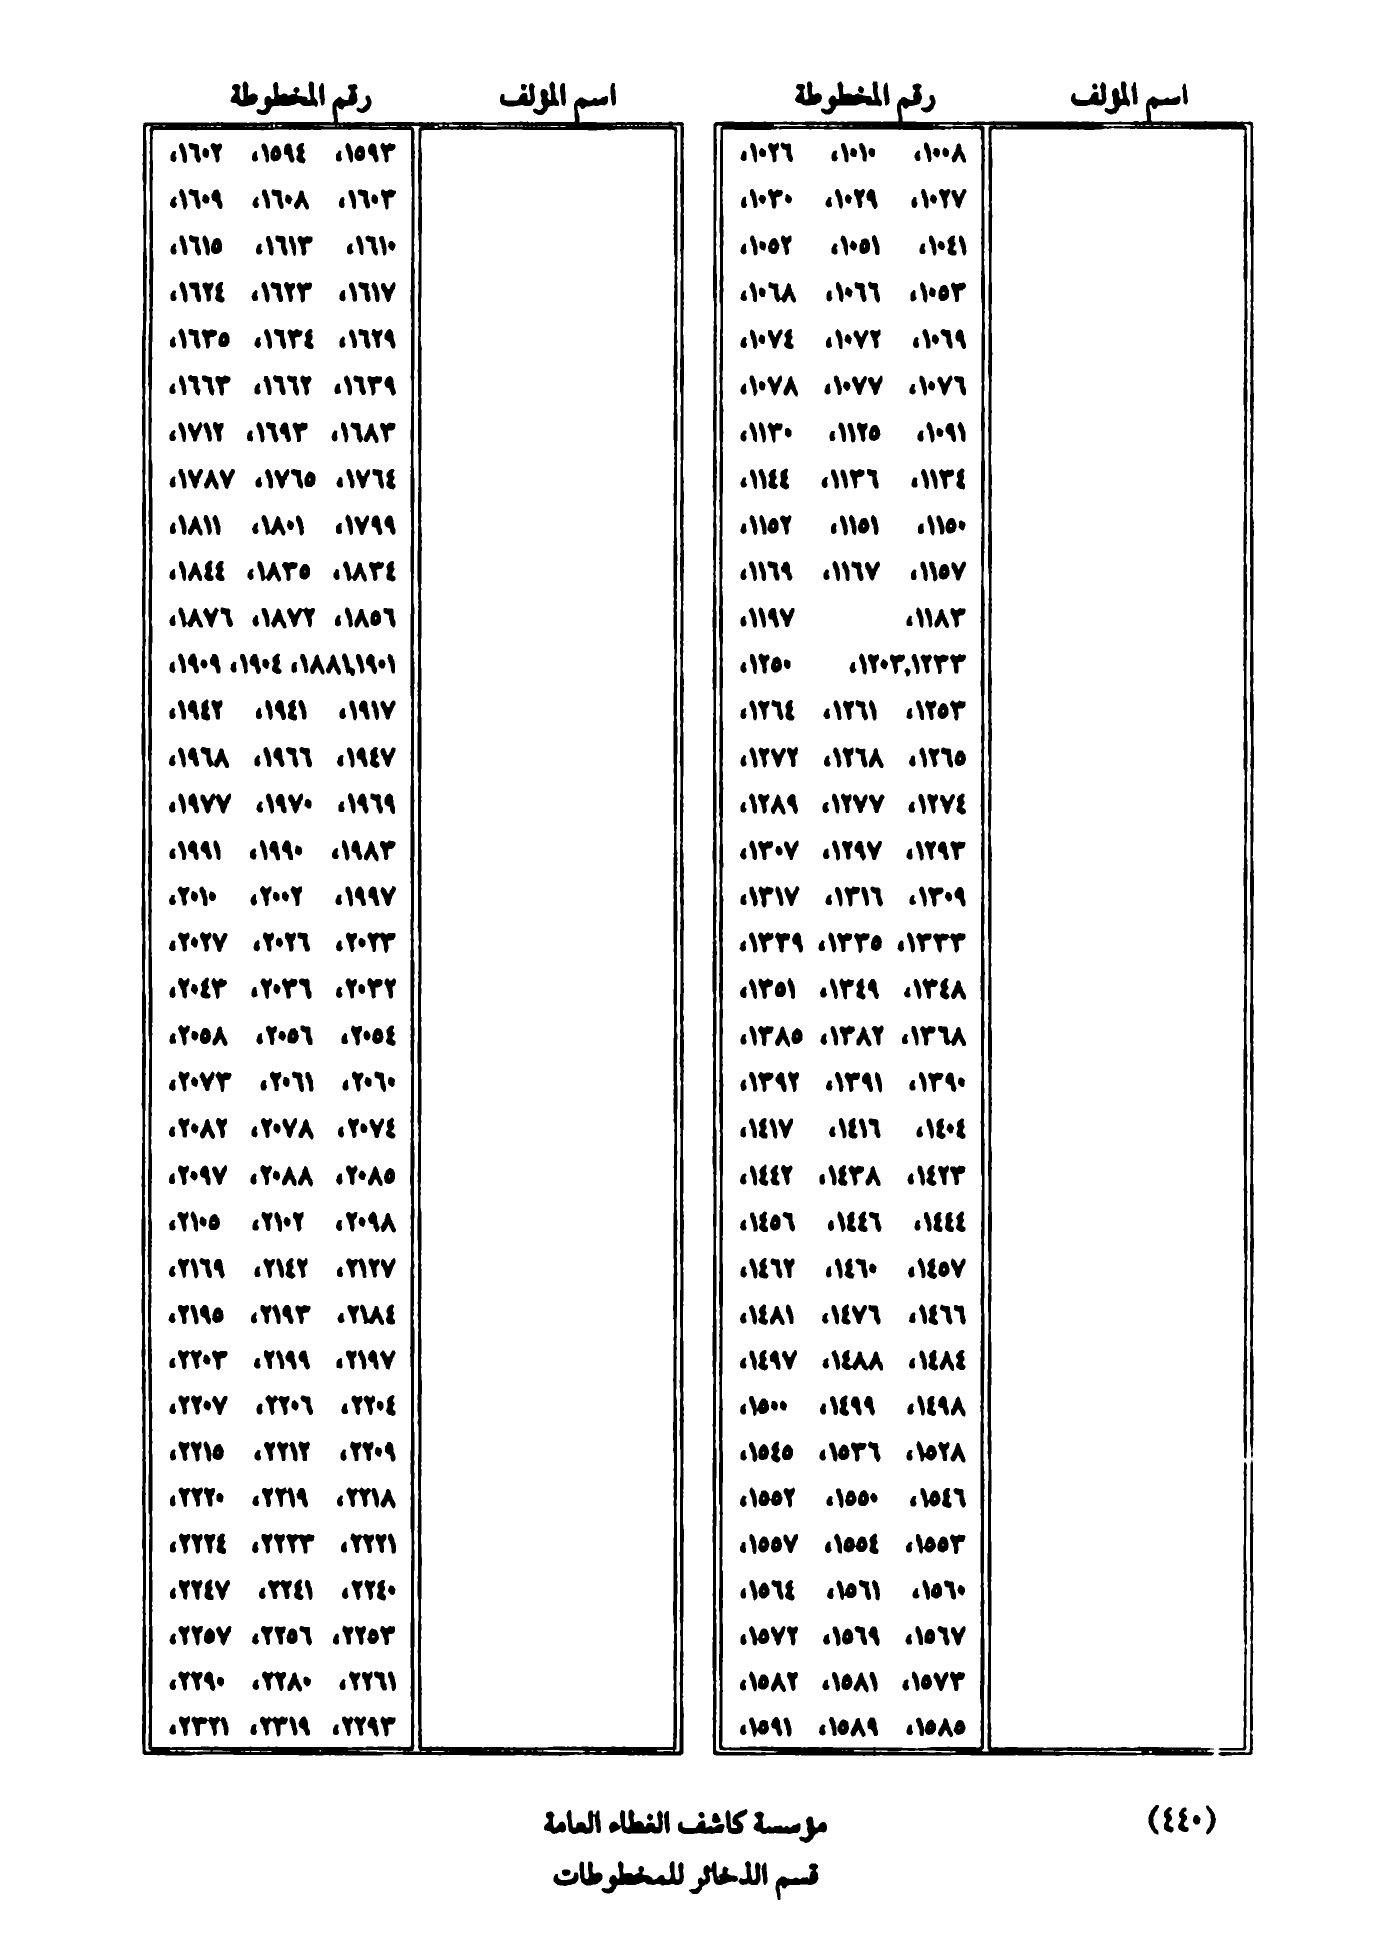 اسم المؤلف رقم المخطوطة
١٠٠٨، ١٠١٠، ١٠٢٦،
١٠٢٧، ١٠٢٩، ١٠٣٠،
١٠٤١، ١٠٥١، ١٠٥٢،
١٠٥٣، ١٠٦٦، ١٠٦٨،
١٠٦٩، ١٠٧٢، ١٠٧٤،
١٠٧٦، ١٠٧٧، ١٠٧٨،
١٠٩١، ١١٢٥، ١١٣٠،
١١٣٤، ١١٣٦، ١١٤٤،
١١٥٠، ١١٥١، ١١٥٢،
١١٥٧، ١١٦٧، ١١٦٩،
١١٨٣، ١١٩٧،
١٢٠٣,١٢٣٣، ١٢٥٠،
١٢٥٣، ١٢٦١، ١٢٦٤،
١٢٦٥، ١٢٦٨، ١٢٧٢،
١٢٧٤، ١٢٧٧، ١٢٨٩،
١٢٩٣، ١٢٩٧، ١٣٠٧،
١٣٠٩، ١٣١٦، ١٣١٧،
١٣٣٣، ١٣٣٥، ١٣٣٩،
١٣٤٨، ١٣٤٩، ١٣٥١،
١٣٦٨، ١٣٨٢، ١٣٨٥،
١٣٩٠، ١٣٩١، ١٣٩٢،
١٤٠٤، ١٤١٦، ١٤١٧،
١٤٢٣، ١٤٣٨، ١٤٤٢،
١٤٤٤، ١٤٤٦، ١٤٥٦،
١٤٥٧، ١٤٦٠، ١٤٦٢،
١٤٦٦، ١٤٧٦، ١٤٨١،
١٤٨٤، ١٤٨٨، ١٤٩٧،
١٤٩٨، ١٤٩٩، ١٥٠٠،
١٥٢٨، ١٥٣٦، ١٥٤٥،
١٥٤٦، ١٥٥٠، ١٥٥٢،
١٥٥٣، ١٥٥٤، ١٥٥٧،
١٥٦٠، ١٥٦١، ١٥٦٤،
١٥٦٧، ١٥٦٩، ١٥٧٢،
١٥٧٣، ١٥٨١، ١٥٨٢،
١٥٨٥، ١٥٨٩، ١٥٩١،
اسم المؤلف رقم المخطوطة
١٥٩٣، ١٥٩٤، ١٦٠٢،
١٦٠٣، ١٦٠٨، ١٦٠٩،
١٦١٠، ١٦١٣، ١٦١٥،
١٦١٧، ١٦٢٣، ١٦٢٤،
١٦٢٩، ١٦٣٤، ١٦٣٥،
١٦٣٩، ١٦٦٢، ١٦٦٣،
١٦٨٣، ١٦٩٣، ١٧١٢،
١٧٦٤، ١٧٦٥، ١٧٨٧،
١٧٩٩، ١٨٠١، ١٨١١،
١٨٣٤، ١٨٣٥، ١٨٤٤،
١٨٥٦، ١٨٧٢، ١٨٧٦،
١٨٨١,١٩٠١، ١٩٠٤، ١٩٠٩،
١٩١٧، ١٩٤١، ١٩٤٢،
١٩٤٧، ١٩٦٦، ١٩٦٨،
١٩٦٩، ١٩٧٠، ١٩٧٧،
١٩٨٣، ١٩٩٠، ١٩٩١،
١٩٩٧، ٢٠٠٢، ٢٠١٠،
٢٠٢٣، ٢٠٢٦، ٢٠٢٧،
٢٠٣٢، ٢٠٣٦، ٢٠٤٣،
٢٠٥٤، ٢٠٥٦، ٢٠٥٨،
٢٠٦٠، ٢٠٦١، ٢٠٧٣،
٢٠٧٤، ٢٠٧٨، ٢٠٨٢،
٢٠٨٥، ٢٠٨٨، ٢٠٩٧،
٢٠٩٨، ٢١٠٢، ٢١٠٥،
٢١٢٧، ٢١٤٢، ٢١٦٩،
٢١٨٤، ٢١٩٣، ٢١٩٥،
٢١٩٧، ٢١٩٩، ٢٢٠٣،
٢٢٠٤، ٢٢٠٦، ٢٢٠٧،
٢٢٠٩، ٢٢١٢، ٢٢١٥،
٢٢١٨، ٢٢١٩، ٢٢٢٠،
٢٢٢١، ٢٢٢٣، ٢٢٢٤،
٢٢٤٠، ٢٢٤١، ٢٢٤٧،
٢٢٥٣، ٢٢٥٦، ٢٢٥٧،
٢٢٦١، ٢٢٨٠، ٢٢٩٠،
٢٢٩٣، ٢٣١٩، ٢٣٢١،
(٤٤٠) مؤسسة كاشف الغطاء العامة
قسم الذخائر للمخطوطات